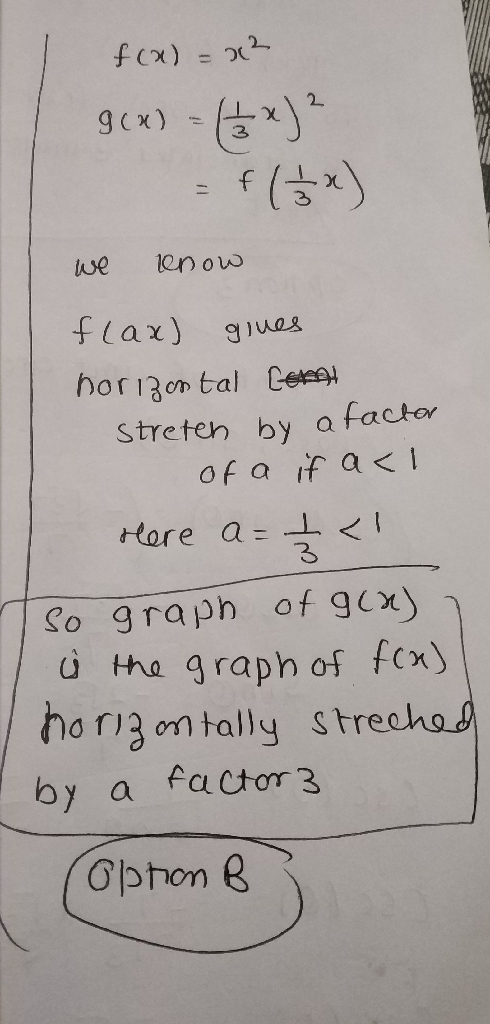 f(x) = x²
g(x) = (1/3 x)²
= f(1/3 x)
we know
f(ax) gives
horizontal
stretch by a factor
of a if a < 1
Here a = 1/3 < 1
So graph of g(x)
is the graph of f(x)
horizontally streched
by a factor 3
Option B